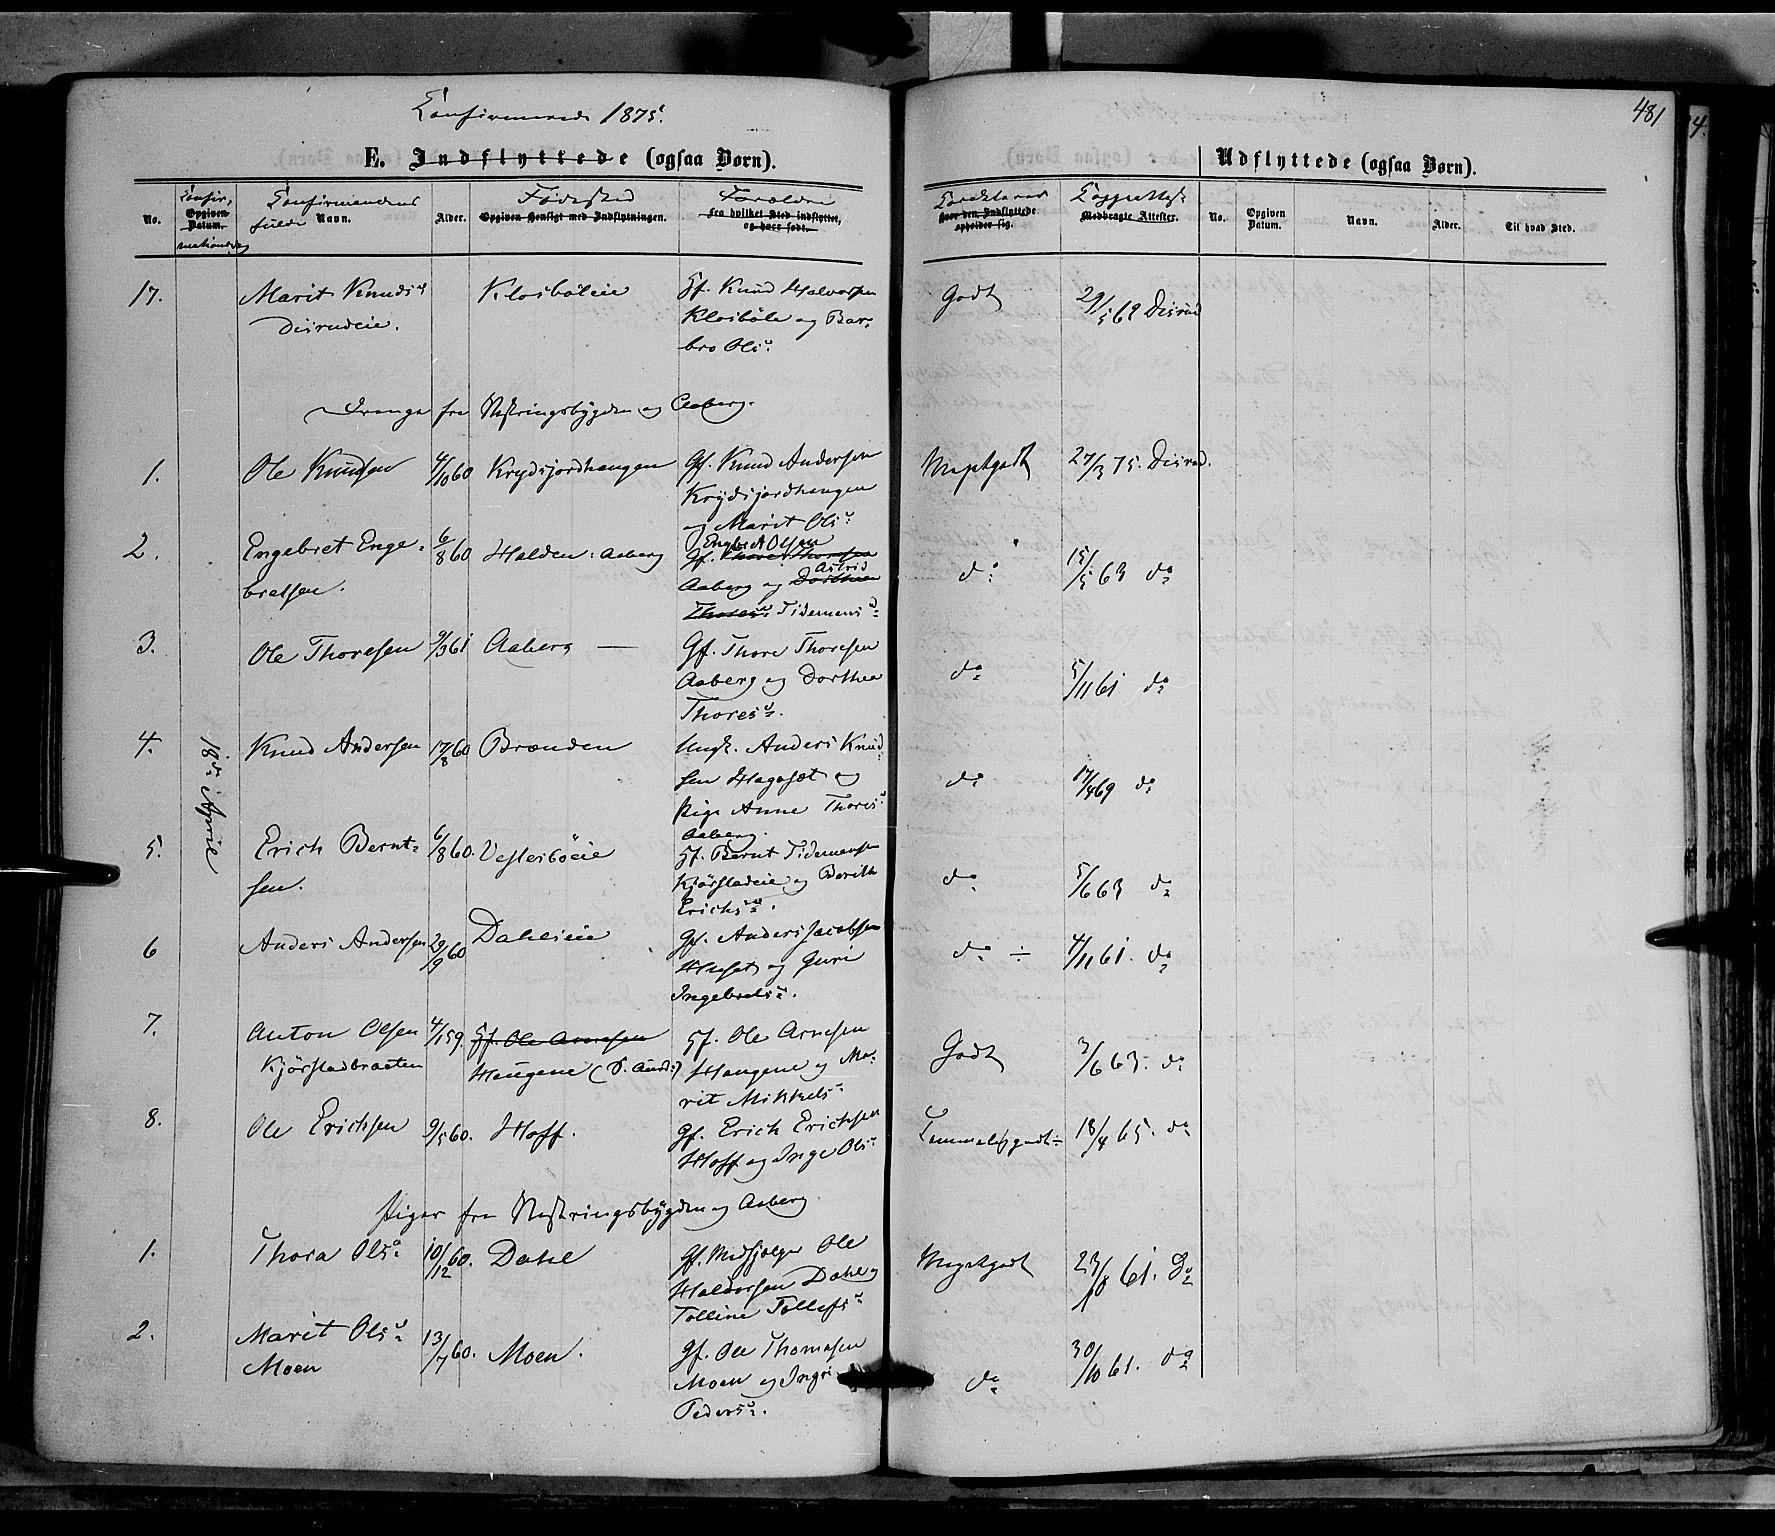 Confirmerede 1875.
481
E. Indflyttede (ogsaa Børn).
Udflyttede (ogsaa Børn).
No.
Confir-
Opgiven Datum.
mationsdag
Confirmandens
fulde Navn.
Alder.
Fødested
Opgiven Hensigt med Indflytningen.
Forældre
fra hvilket Sted indflyttet, og hvor født.
Karakterer
hvor den Indflyttede opholder sig.
Medbragte Attester.
No.
Opgiven Datum.
Navn.
Alder.
Til hvad Sted.
17. Marit Knudsd Klosbøleie Gf. Knud Halvorsen Godt 29/5 62 Disrud
Disrudeie. Klosbøle og Bar-
bro Olsd.
Drenge fra Nestringsbygden og Aaberg.
18de April
1. Ole Knudsen 4/10 60 Krydsjordhaugen Gf. Knud Andersen Megetgodt 27/3 75. Disrud.
Krydsjordhaugen
og Marit Olsd.
2. Engebret Enge- 6/8 60 Halden: Aaberg Engebret Olsen
bretsen. Gf. Thore Thoresen do 15/5 63 do
Astrid
Aaberg og Dorthea
Thoresd Tidemansd
3. Ole Thoresen 9/3 61 Aaberg — Gf. Thore Thoresen do 5/11 61 do
Aaberg og Dorthea
Thoresd.
4. Knud Andersen 17/8 60 Brænden Ungk. Anders Knud- do 17/4 69 do
sen Hagaset og
Pige Anne Thoresd
Aaberg.
5. Erich Bernt- 6/8 60. Veslesböeie Gf. Bernt Tidemansen do 5/6 63 do
sen. Kjørstadeie og Berith
Erichsd.
6 Anders Andersen 29/9 60 Dahleeie Gf. Anders Jacobsen do ÷ 4/11 61. do
Huset og Guri
Ingebretsd.
7. Anton Olsen 4/1 59. Gf. Ole Arnesen Gf. Ole Arnesen Godt 3/6 63. do
Kjørstadbraaten Haugene (S. Aurd:) Haugene og Ma-
rit Mikkelsd
8. Ole Erichsen 9/5 60. Hoff. Gf. Erich Erichsen Temmeligodt÷ 18/4 65. do
Hoff og Inge Olsd
Piger fra Nestringsbygden og Aaberg
1. Thora Olsd 10/12 60. Dahl Gf. Medhjelper Ole Megetgodt 23/8 61. Do
Haldorsen Dahl og
Tolline Tollefsd
2. Marit Olsd 13/7 60. Moen. Gf. Ole Thomasen do 30/10 61. do
Moen Moen og Ingri
Pedersd.